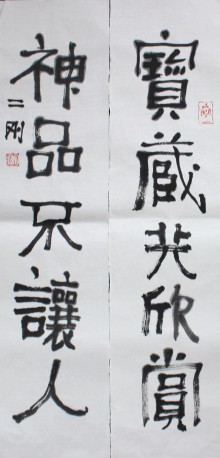 寶藏共欣賞
神品不讓人
二刚